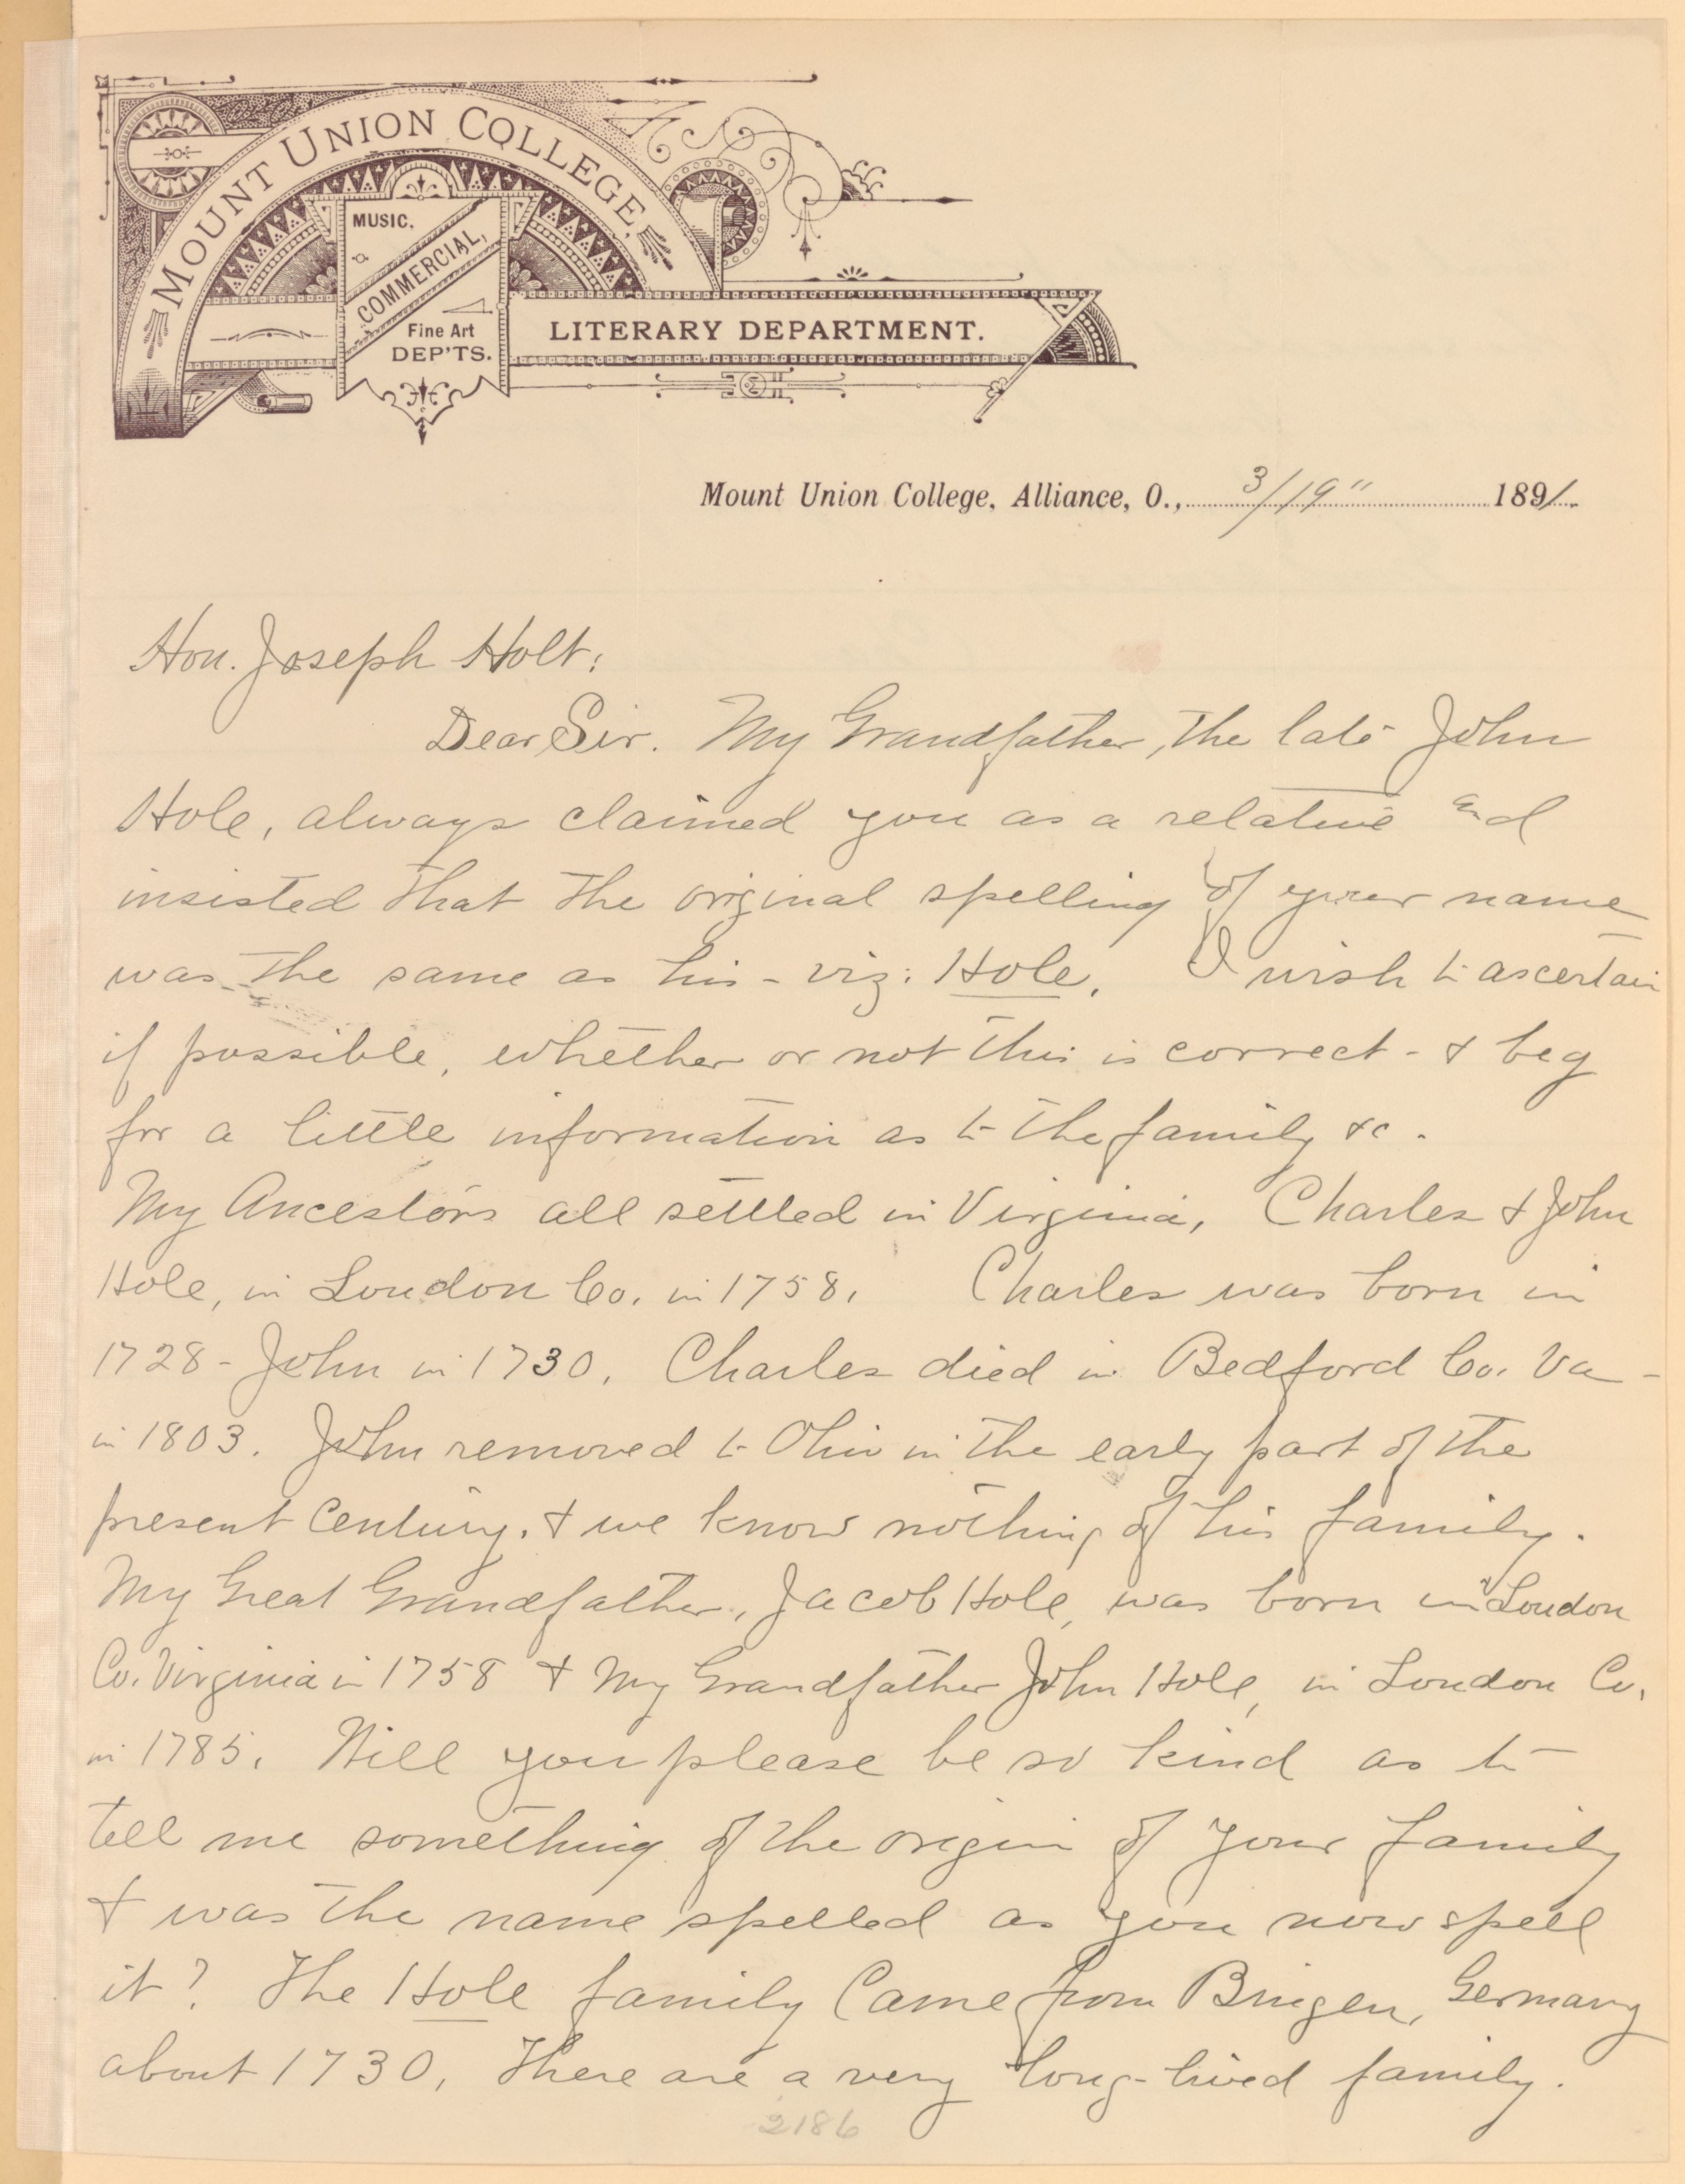 MOUNT UNION COLLEGE.
MUSIC.
COMMERCIAL,
Fine Art
DEP'TS.
LITERARY DEPARTMENT.
Mount Union College, Alliance, O., 3/19" 1891.
Hon. Joseph Holt:
Dear Sir. My Grandfather, the late John
Hole, always claimed you as a relative and
insisted that the original spelling of your name
was the same as his - viz: Hole. I wish to ascertain
if possible, whether or not this is correct - & beg
for a little information as to the family &c.
My Ancestors all settled in Virginia, Charles & John
Hole, in Loudon Co. in 1758. Charles was born in
1728 - John in 1730. Charles died in Bedford Co. Va -
in 1803. John removed to Ohio in the early part of the
present Century. & we know nothing of his family.
My Great Grandfather, Jacob Hole, was born in Loudon
Co. Virginia in 1758 & My Grandfather John Hole, in Loudon Co.
in 1785. Will you please be so kind as to
tell me something of the origin of your family
& was the name spelled as you now spell
it? The Hole family Came from Bingen, Germany
about 1730. There are a very long-lived family.
2186